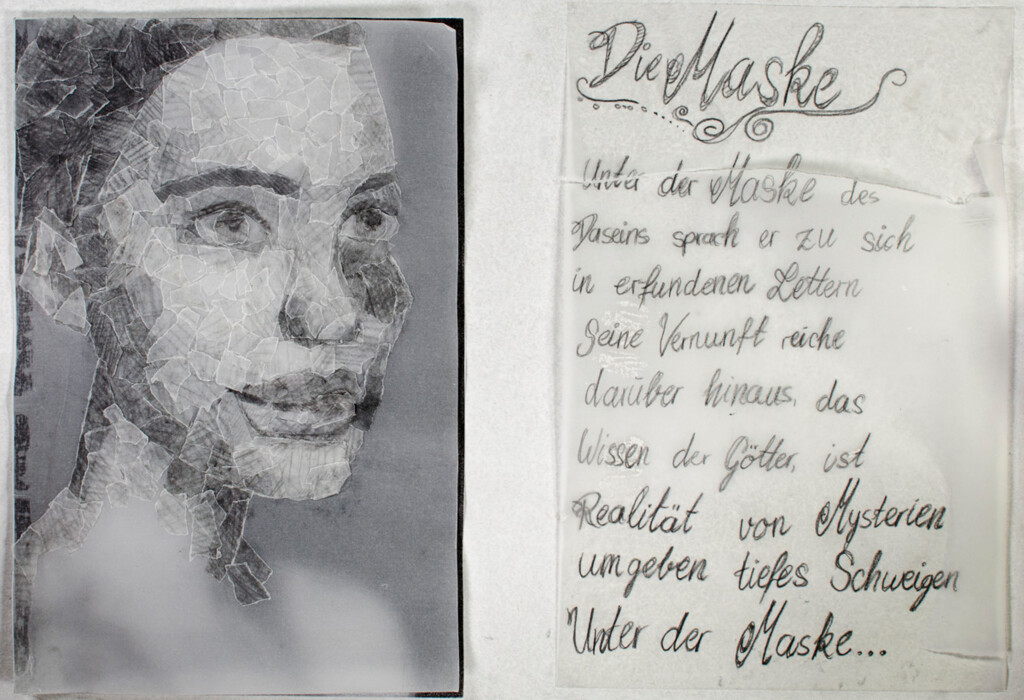 Die Maske
Unter der Maske des
Daseins sprach er zu sich
in erfundenen Lettern
Seine Vernunft reiche
darüber hinaus, das
Wissen der Götter, ist
Realität von Mysterien
umgeben tiefes Schweigen
Unter der Maske...